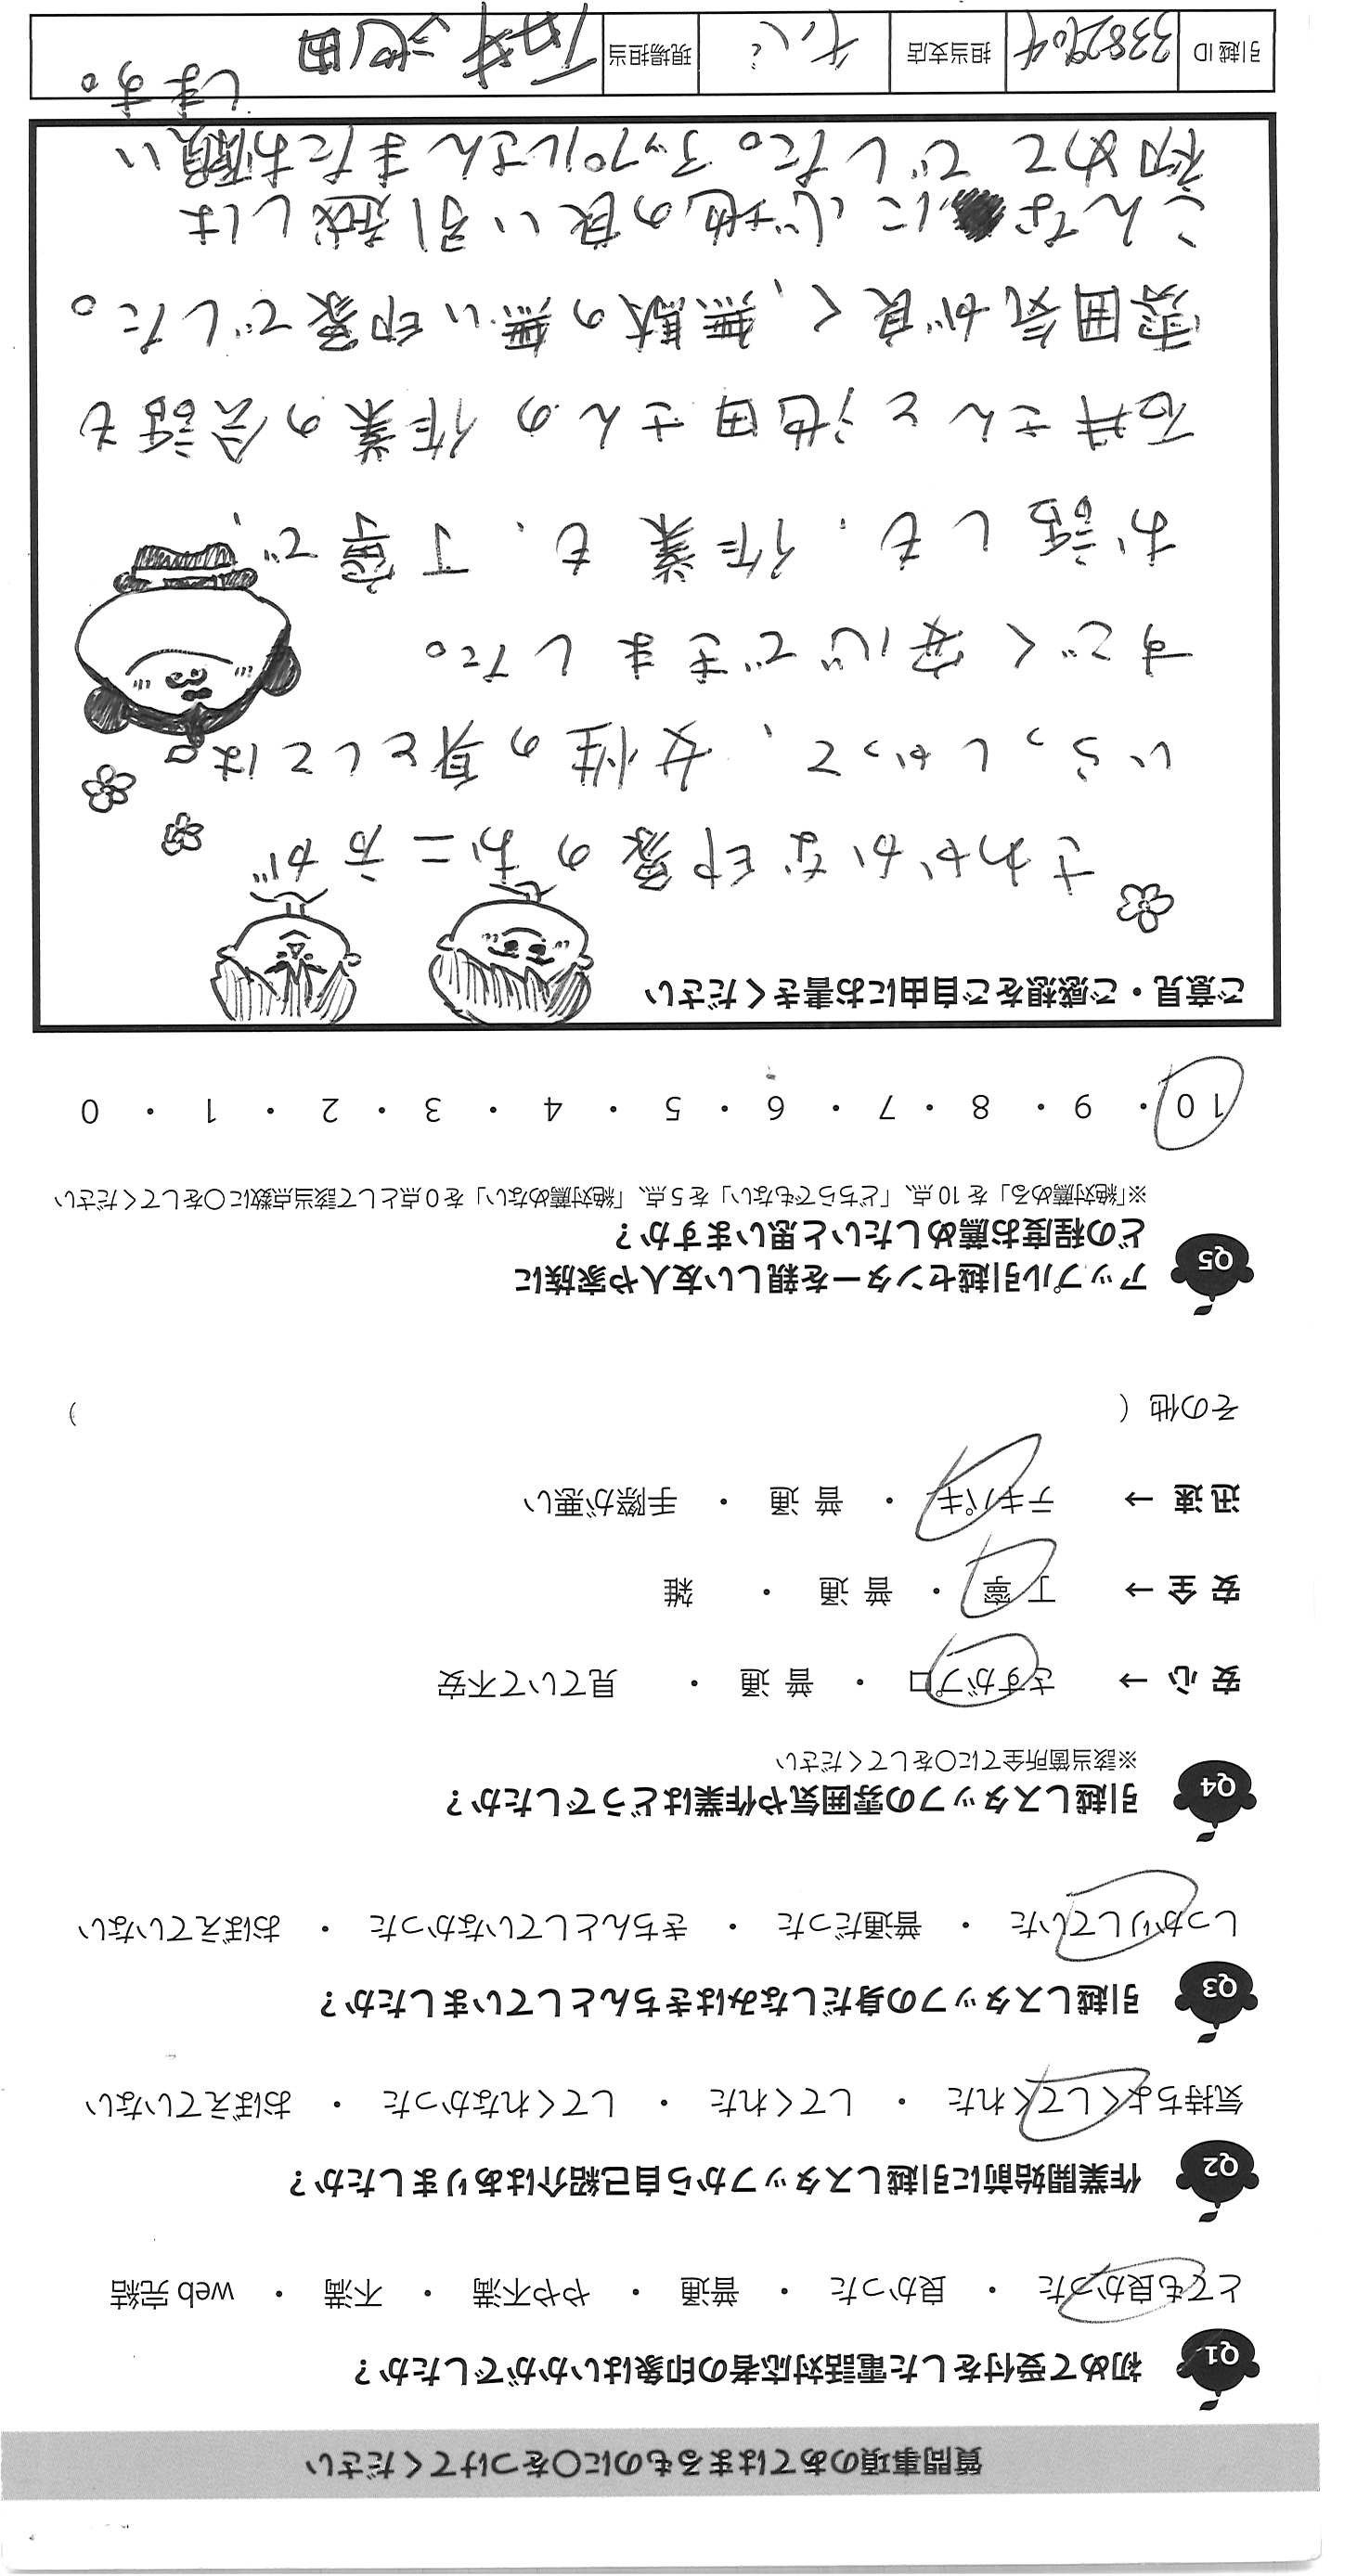 質問事項のあてはまるものに〇をつけてください
Q1 初めて受付をした電話対応者の印象はいかがでしたか？
とても良かった ・ 良かった ・ 普通 ・ やや不満 ・ 不満 ・ web 完結
Q2 作業開始前に引越しスタッフから自己紹介はありましたか？
気持ちよくしてくれた ・ してくれた ・ してくれなかった ・ おぼえていない
Q3 引越しスタッフの身だしなみはきちんとしていましたか？
しっかりしていた ・ 普通だった ・ きちんとしていなかった ・ おぼえていない
Q4 引越しスタッフの雰囲気や作業はどうでしたか？
※該当箇所全てに〇をしてください
安 心 → さすがプロ ・ 普 通 ・ 見ていて不安
安 全 → 丁 寧 ・ 普 通 ・ 雑
迅 速 → テキパキ ・ 普 通 ・ 手際が悪い
その他（ ）
Q5 アップル引越センターを親しい友人や家族に
どの程度お薦めしたいと思いますか？
※「絶対薦める」を 10 点、「どちらでもない」を 5 点、「絶対薦めない」を 0 点として該当点数に〇をしてください
10 ・ 9 ・ 8 ・ 7 ・ 6 ・ 5 ・ 4 ・ 3 ・ 2 ・ 1 ・ 0
ご意見・ご感想をご自由にお書きください
さわやかな印象のお二方が
いらっしゃって、女性の身としては
すごく安心できました。
お話しも、作業も、丁寧で、
石井さんと池田さんの作業の会話も
雰囲気が良く、無駄の無い印象でした。
こんなに心地の良い引越しは
初めてでした。アップルさんまたお願い
します。
引越 ID 3382904 担当支店 チバ 現場担当 石井 池田